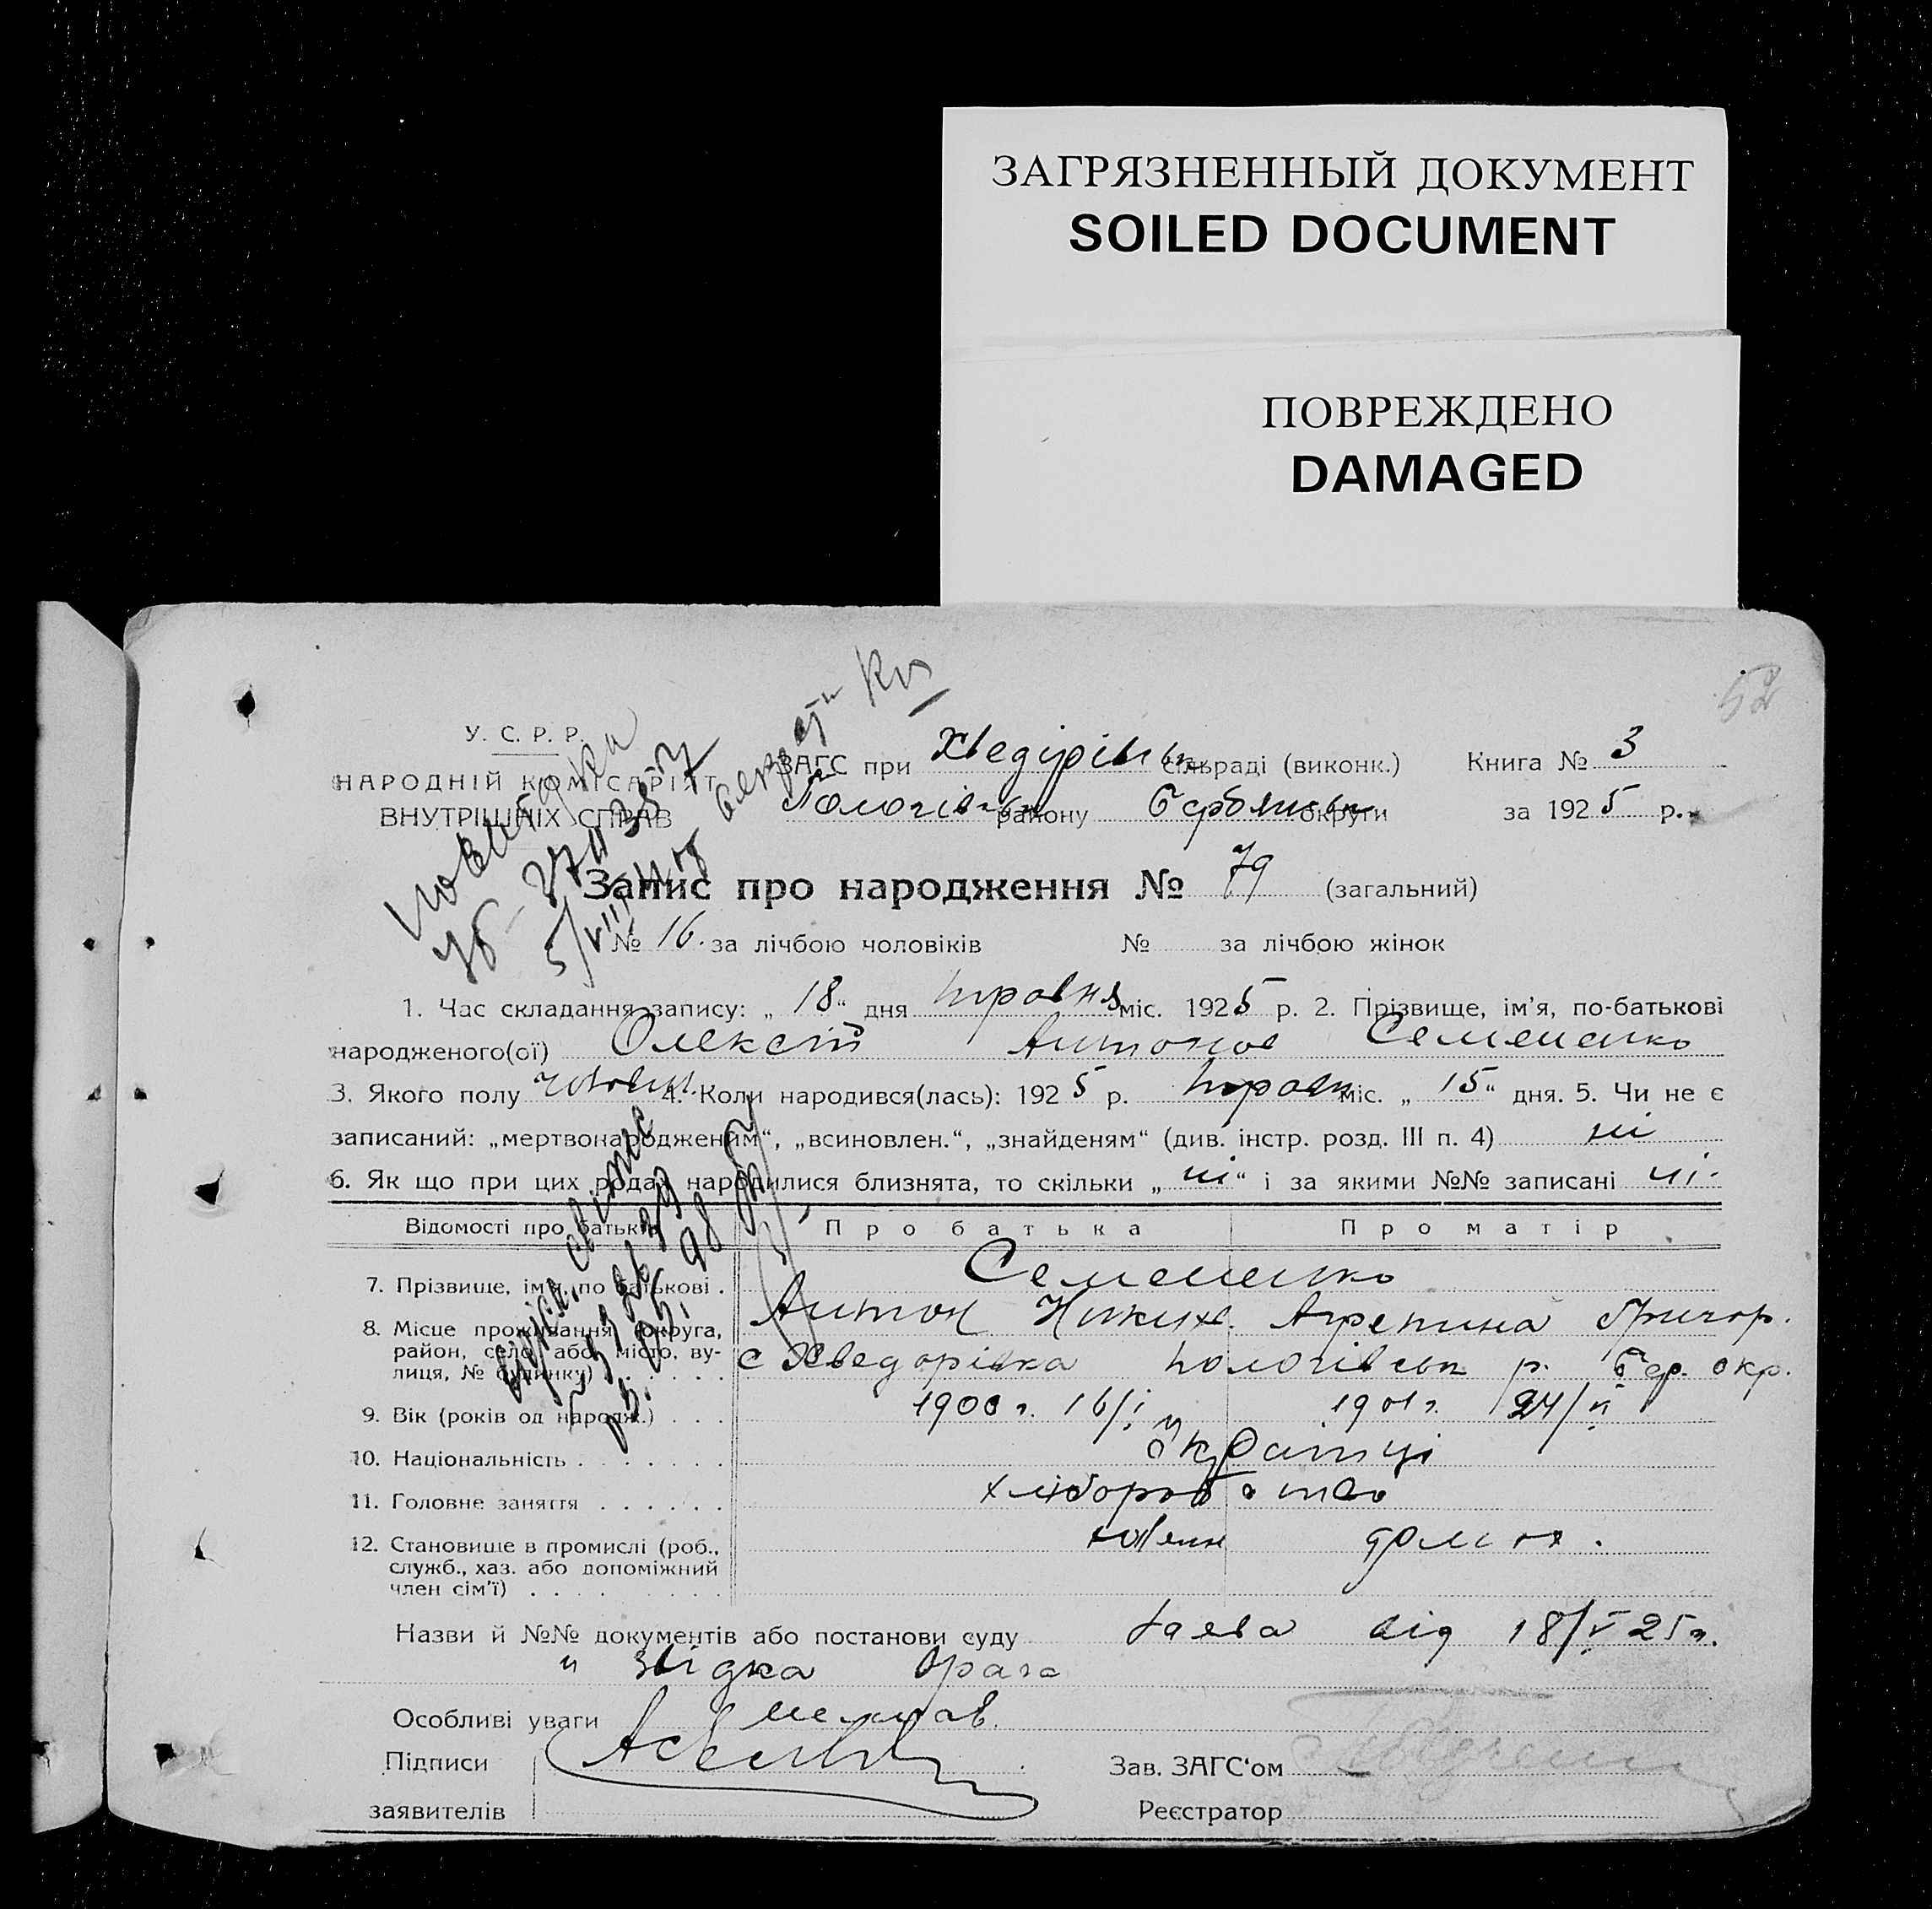 ЗАГРЯЗНЕННЫЙ ДОКУМЕНТ
SOILED DOCUMENT
ПОВРЕЖДЕНО
DAMAGED
52
У. С. Р. Р.
НАРОДНІЙ КОМІСАРІЯТ
ВНУТРІШНІХ СПРАВ
ЗАГС при Хведірівськ сільраді (виконк.) Книга № 3
Пологівськ району Бердянськ округи за 1925 р.
Запис про народження № 79 (загальний)
№ 16. за лічбою чоловіків № за лічбою жінок
1. Час складання запису: „ 18 “ дня травня міс. 1925 р. 2. Прізвище, ім'я, по-батькові
народженого(ої) Олексій Антонов Семененко
3. Якого полу 4. Коли народився(лась): 1925 р. травн міс. „ 15 “ дня. 5. Чи не є
записаний: „мертвонародженим“, „всиновлен.“, „знайденям“ (див. інстр. розд. III п. 4) ні
6. Як що при цих родах народилися близнята, то скільки „ ні “ і за якими №№ записані ні
Відомості про батьків Про батька Про матір
7. Прізвище, ім'я, по батькові . Семененко
Антон Никих. Агрепина Григор.
8. Місце проживання (округа,
район, село, або місто, ву-
лиця, № будинку) . . . . . с Хведорівка Пологівськ р. Бер. окр.
9. Вік (років од народж.) . . . 1900 г. 16/I 1901 г. 24/II
10. Національність . . . . . . . українці
11. Головне заняття . . . . . . хліборобство
12. Становище в промислі (роб.,
служб., хаз. або допоміжний
член сім'ї) . . . . . . . .
Назви й №№ документів або постанови суду заява від 18/V 25 г.
" звідка
Особливі уваги немає
Підписи
заявителів
Зав. ЗАГС'ом
Реєстратор